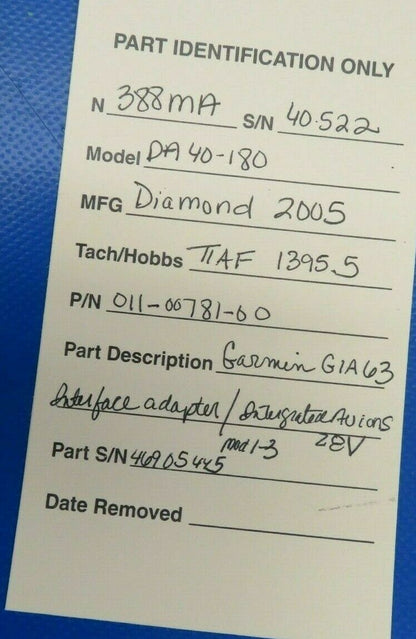 PART IDENTIFICATION ONLY
N 388MA S/N 40.522
Model DA 40-180
MFG Diamond 2005
Tach/Hobbs TTAF 1395.5
P/N 011-00781-00
Part Description Garmin GIA63
Interface adapter / Intergrated Avions
mod 1-3 28V
Part S/N 46905445
Date Removed